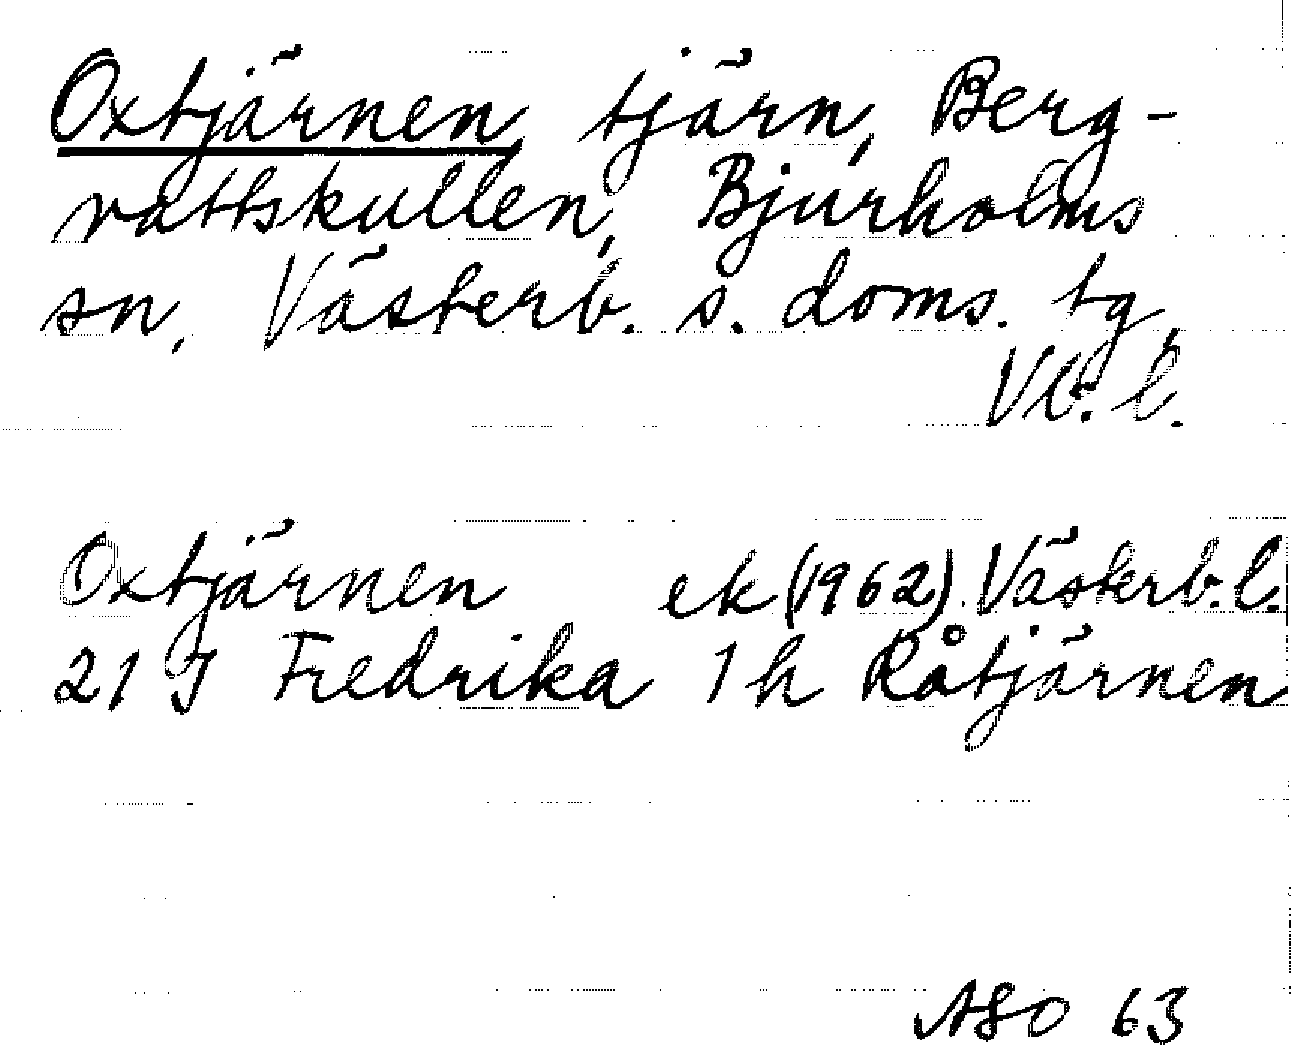 Oxtjärnen, tjärn, Berg-
vattskullen, Bjurholms
sn, Västerb. s. doms. tg,
Vb. l.
Oxtjärnen ek (1962) Västerb. l.
21 J Fredrika 1 h Råtjärnen
ASO 63